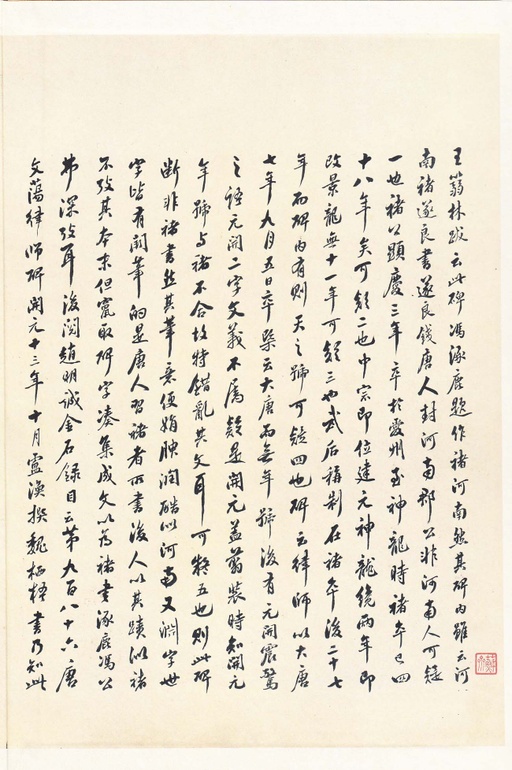 王蒻林跋云此碑馮涿鹿題作褚河南然其碑內雖云河
南褚遂良書遂良錢唐人封河南郡公非河南人可疑
一也褚公顯慶三年卒於愛州至神龍時褚卒已四
十八年矣可疑二也中宗即位建元神龍纔兩年即
改景龍無十一年可疑三也武后稱制在褚卒後二十七
年而碑內有則天之號可疑四也碑云律師以大唐
七年九月五日卒槩云大唐而無年號後有元開震驚
之語元開二字文義不属疑是開元蓋蒻裝時知開元
年號与褚不合故特錯亂其文耳可疑五也則此碑
斷非褚書然其筆意便娟腴潤酷似河南又淵字世
字皆有闕筆的是唐人習褚者所書後人以其蹟似褚
不攷其本末但竄取碑字湊集成文以為褚書涿鹿馮公
弗深攷耳後閱趙明誠金石錄目云第九百八十六唐
文蕩律師碑開元十三年十月盧渙撰魏栖梧書乃知此